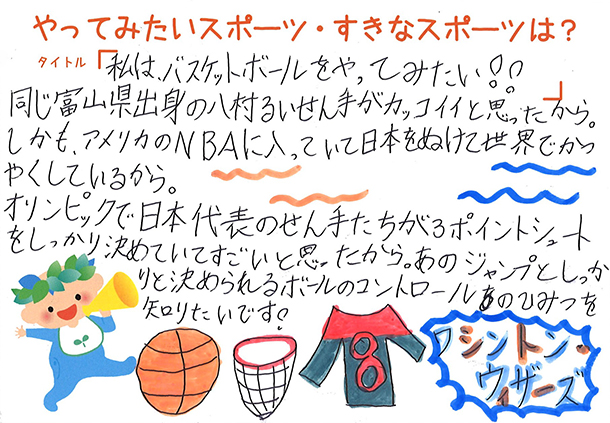 やってみたいスポーツ・すきなスポーツは?
タイトル「私は、バスケットボールをやってみたい!!」
同じ富山県出身の八村るいせん手がカッコイイと思ったから。
しかも、アメリカのNBAに入っていて日本をぬけて世界でかつ
やくしているから。
オリンピックで日本代表のせん手たちが3ポイントシュート
をしっかり決めていてすごいと思ったから。あのジャンプとしっか
りと決められるボールのコントロールあのひみつを
知りたいです!
8
ワシントン・
ウィザーズ